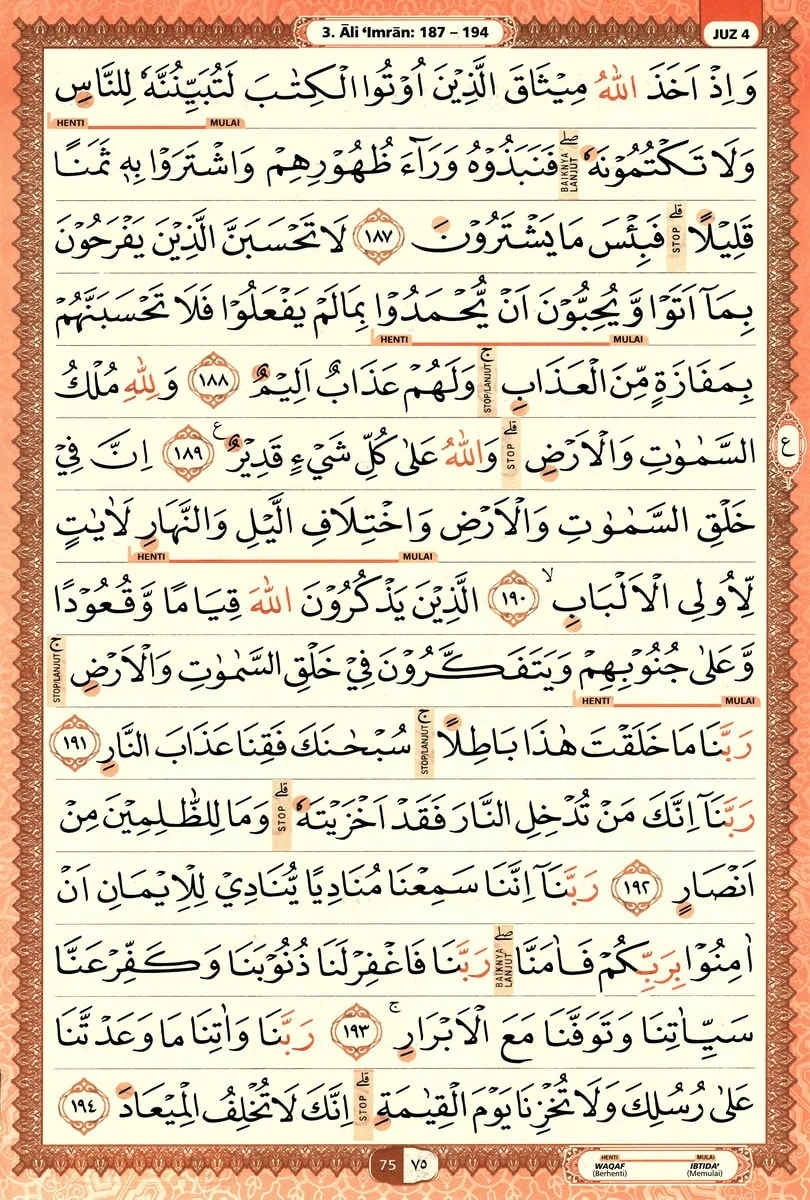 3. Āli ‘Imrān: 187 – 194
JUZ 4
وَاِذْ اَخَذَ اللّٰهُ مِيْثَاقَ الَّذِيْنَ اُوْتُوا الْكِتٰبَ لَتُبَيِّنُنَّهٗ لِلنَّاسِ
HENTI MULAI
وَلَا تَكْتُمُوْنَهٗۖ فَنَبَذُوْهُ وَرَاۤءَ ظُهُوْرِهِمْ وَاشْتَرَوْا بِهٖ ثَمَنًا
BAIKNYA LANJUT
قَلِيْلًاۗ فَبِئْسَ مَا يَشْتَرُوْنَ ١٨٧ لَا تَحْسَبَنَّ الَّذِيْنَ يَفْرَحُوْنَ
STOP
بِمَآ اَتَوْا وَّيُحِبُّوْنَ اَنْ يُّحْمَدُوْا بِمَا لَمْ يَفْعَلُوْا فَلَا تَحْسَبَنَّهُمْ
HENTI MULAI
بِمَفَازَةٍ مِّنَ الْعَذَابِۚ وَلَهُمْ عَذَابٌ اَلِيْمٌ ١٨٨ وَلِلّٰهِ مُلْكُ
STOP/LANJUT
السَّمٰوٰتِ وَالْاَرْضِۗ وَاللّٰهُ عَلٰى كُلِّ شَيْءٍ قَدِيْرٌ ࣖ ١٨٩ اِنَّ فِيْ
STOP
ع
خَلْقِ السَّمٰوٰتِ وَالْاَرْضِ وَاخْتِلَافِ الَّيْلِ وَالنَّهَارِ لَاٰيٰتٍ
HENTI MULAI
لِّاُولِى الْاَلْبَابِۙ ١٩٠ الَّذِيْنَ يَذْكُرُوْنَ اللّٰهَ قِيَامًا وَّقُعُوْدًا
وَّعَلٰى جُنُوْبِهِمْ وَيَتَفَكَّرُوْنَ فِيْ خَلْقِ السَّمٰوٰتِ وَالْاَرْضِۚ
STOP/LANJUT
HENTI MULAI
رَبَّنَا مَا خَلَقْتَ هٰذَا بَاطِلًاۚ سُبْحٰنَكَ فَقِنَا عَذَابَ النَّارِ ١٩١
STOP/LANJUT
رَبَّنَآ اِنَّكَ مَنْ تُدْخِلِ النَّارَ فَقَدْ اَخْزَيْتَهٗۗ وَمَا لِلظّٰلِمِيْنَ مِنْ
STOP
اَنْصَارٍ ١٩٢ رَبَّنَآ اِنَّنَا سَمِعْنَا مُنَادِيًا يُّنَادِيْ لِلْاِيْمَانِ اَنْ
اٰمِنُوْا بِرَبِّكُمْ فَاٰمَنَّاۖ رَبَّنَا فَاغْفِرْ لَنَا ذُنُوْبَنَا وَكَفِّرْ عَنَّا
BAIKNYA LANJUT
سَيِّاٰتِنَا وَتَوَفَّنَا مَعَ الْاَبْرَارِۚ ١٩٣ رَبَّنَا وَاٰتِنَا مَا وَعَدْتَّنَا
عَلٰى رُسُلِكَ وَلَا تُخْزِنَا يَوْمَ الْقِيٰمَةِۗ اِنَّكَ لَا تُخْلِفُ الْمِيْعَادَ ١٩٤
STOP
75 ٧٥
HENTI MULAI
WAQAF IBTIDA'
(Berhenti) (Memulai)